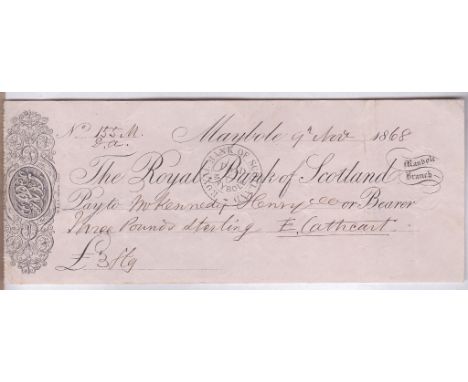 No 155 M.
Maybole 9th Nov 1868
The Royal Bank of Scotland
Maybole Branch
Pay to McKennedy Henry & Co or Bearer
Three Pounds Sterling E. Cathcart
£3 Stg
BANK OF SCOTLAND